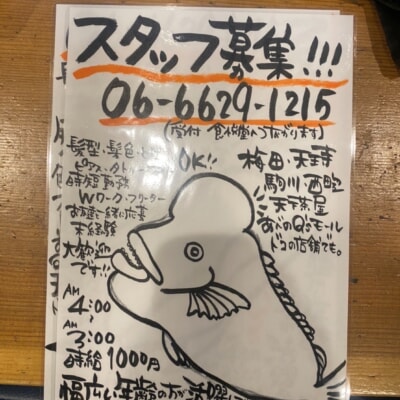 スタッフ募集!!!
06-6629-1215
(受付 食倒堂へつながります)
髪型・髪色・
ピアス・タトゥー
OK!!
時短勤務
Wワーク・フリーター
お友達と一緒に応募
未経験
大歓迎
です!!
梅田・天王寺
駒川・西田辺
天下茶屋
あべのQ'sモール
ドコの店舗でも。
AM
4:00
~
AM
3:00
時給 1000円
幅広い年齢の方が活躍